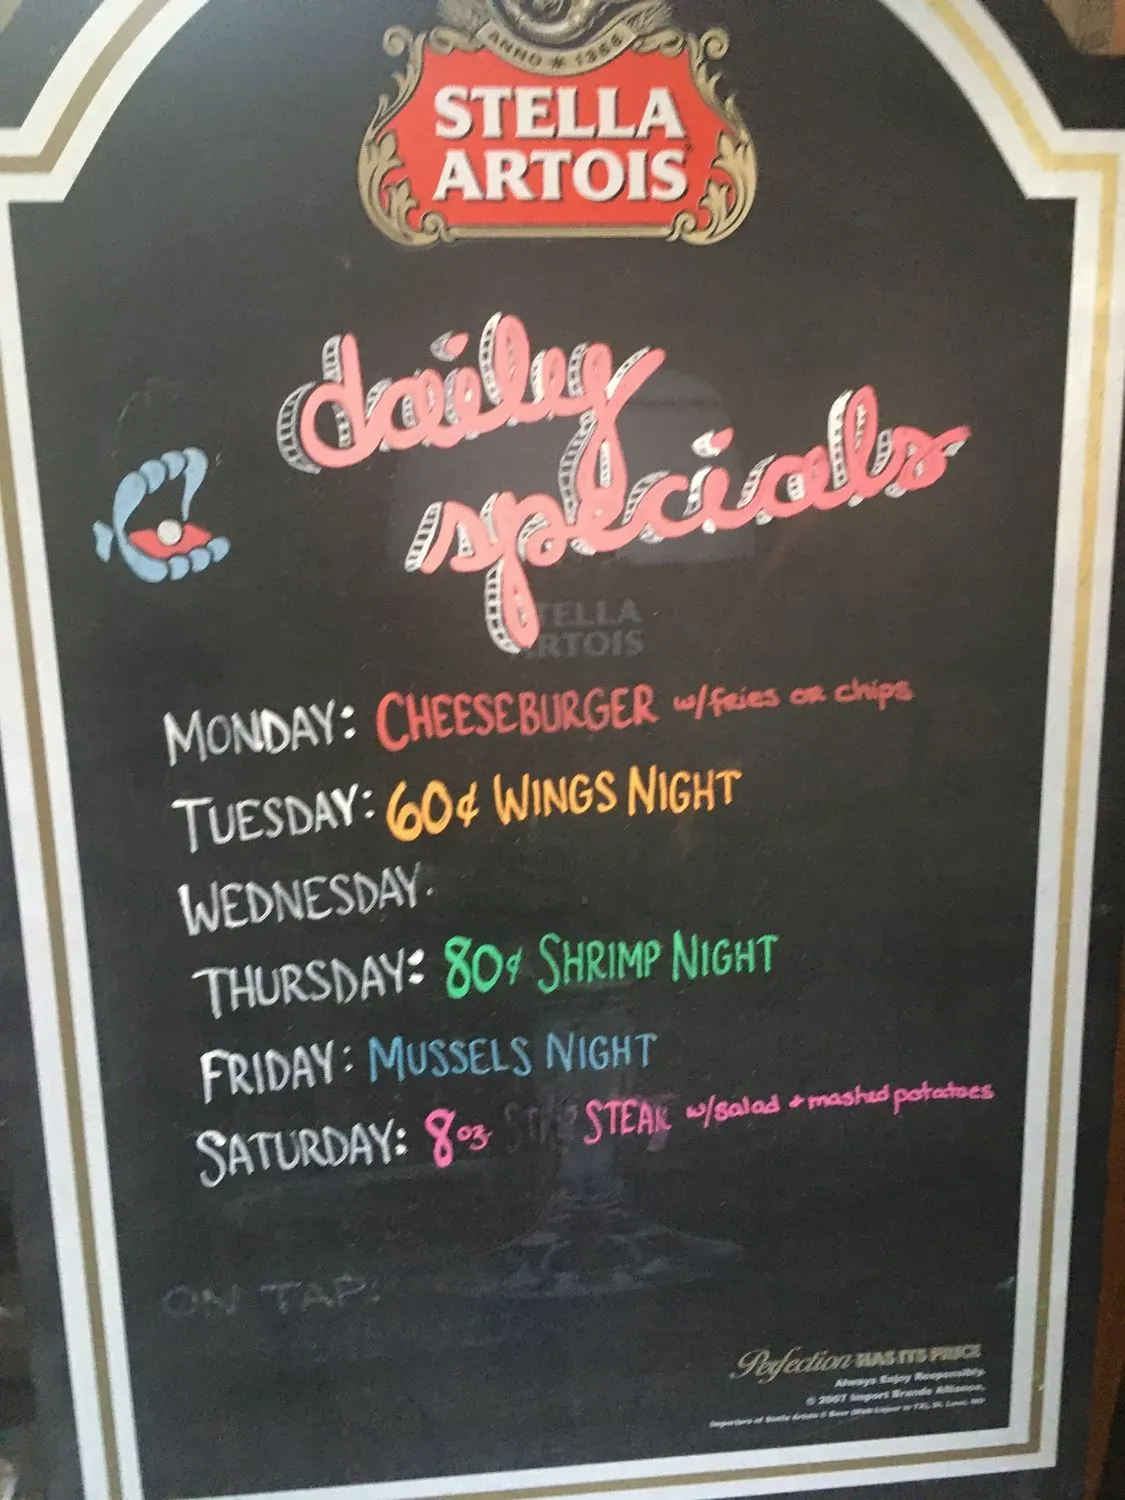 ANNO ★ 1366
STELLA
ARTOIS
daily
specials
TELLA
RTOIS
MONDAY: CHEESEBURGER w/fries or chips
TUESDAY: 60¢ WINGS NIGHT
WEDNESDAY.
THURSDAY: 80¢ SHRIMP NIGHT
FRIDAY: MUSSELS NIGHT
SATURDAY: 8oz STEAK w/salad + mashed potatoes
ON TAP:
Perfection HAS ITS PRICE
Always Enjoy Responsibly.
© 2007 Import Brands Alliance,
Importers of Stella Artois ® Beer (Malt Liquor in TX), St. Louis, MO